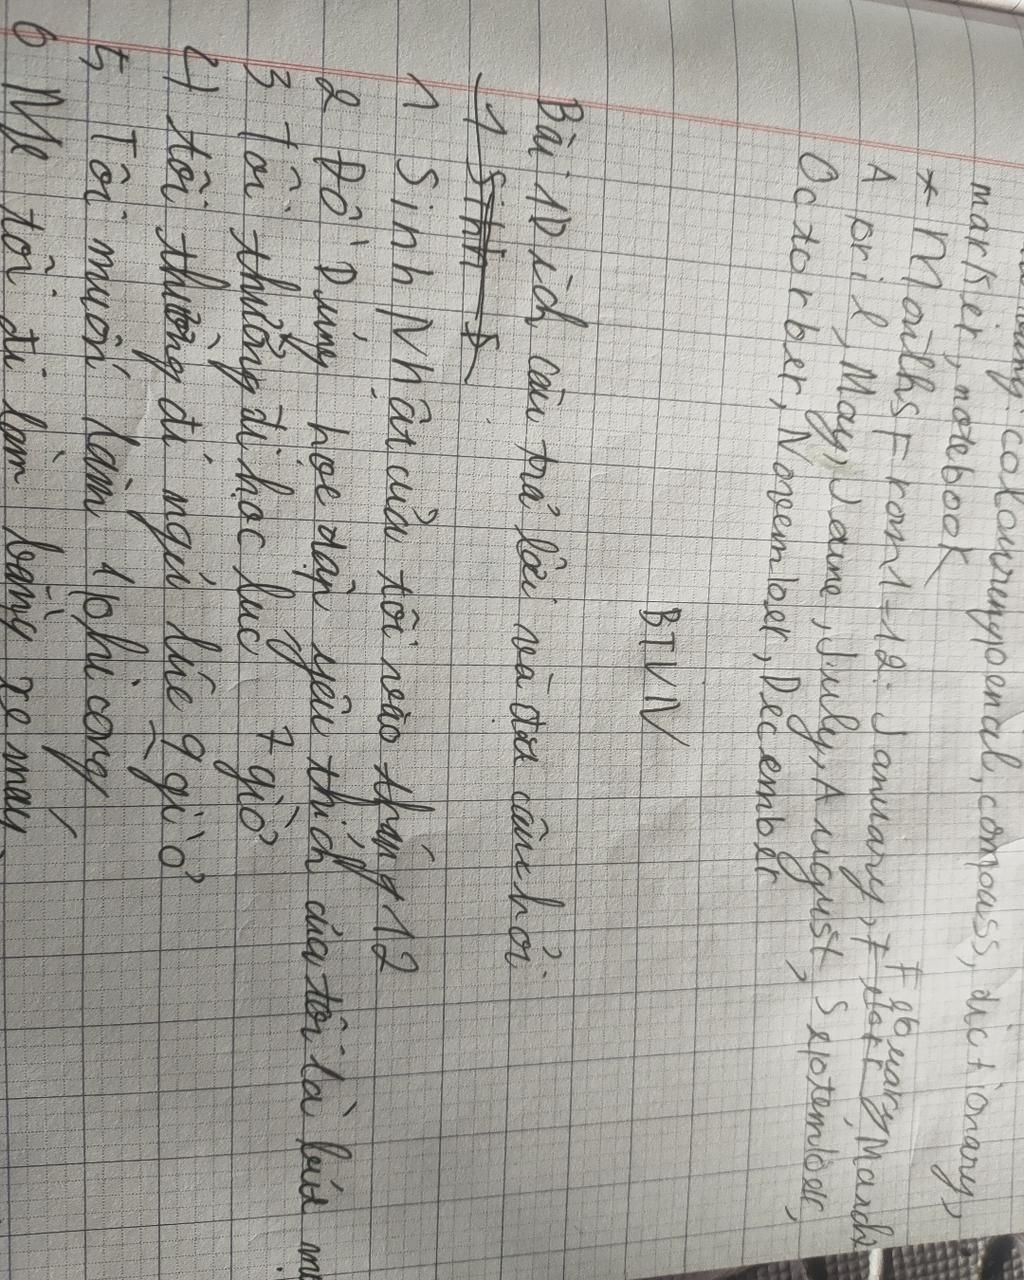 colouring penal, compass, dictionary,
marker, notebook
* Months From 1-12: January, Febuary, March,
April, May, June, July, August, September,
October, November, December
BTVN
Bài 1 Dịch câu trả lời và đặt câu hỏi
1 Sinh Nhật của tôi vào tháng 12
2 Đồ Dùng học tập yêu thích của tôi là bút
3 Tôi thường đi học lúc 7 giờ
4 tôi thường đi ngủ lúc 9 giờ
5 Tôi muốn làm 1 phi công
6 Mẹ tôi đi làm bằng xe máy